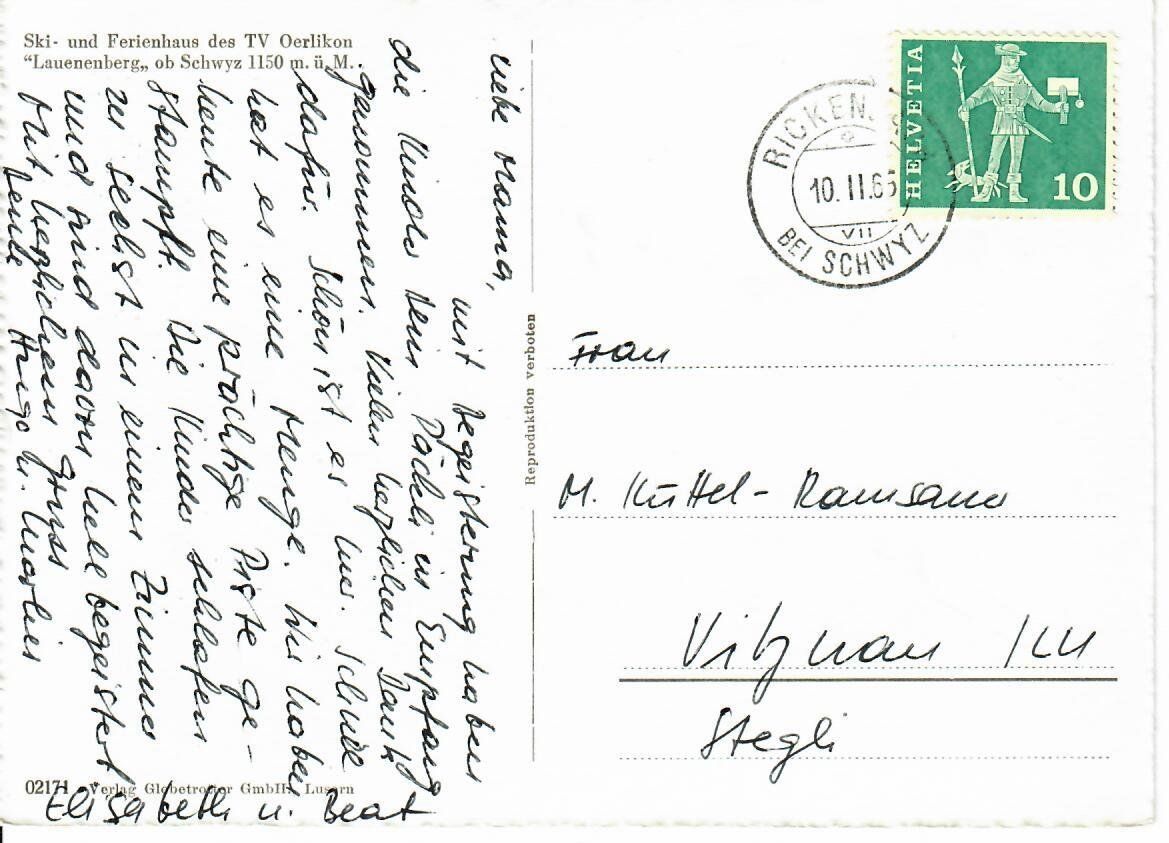 Ski- und Ferienhaus des TV Oerlikon
"Lauenenberg„ ob Schwyz 1150 m. ü. M.
Liebe Mama,
mit Begeisterung haben
die Kinder Dein Päckli in Empfang
genommen. Vielen herzlichen Dank
dafür. Schön ist es hier. Schnee
hat es eine Menge. Wir haben
heute eine prächtige Piste ge-
stampft. Die Kinder schlafen
zu sechst in einem Zimmer
und sind davon hell begeistert
Mit herzlichem Gruss
Hugo u. Marlies
Elisabeth u. Beat
02171 Verlag Globetrotter GmbH. Luzern
Reproduktion verboten
RICKEN
10.II.65
VII
BEI SCHWYZ
HELVETIA
10
Frau
M. Küttel-Ramsauer
Vitznau /LU
Stegli